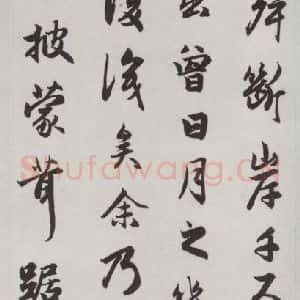 斷岸千尺
出曾日月之幾
復識矣余乃
披蒙茸踞
Shufawang.cn